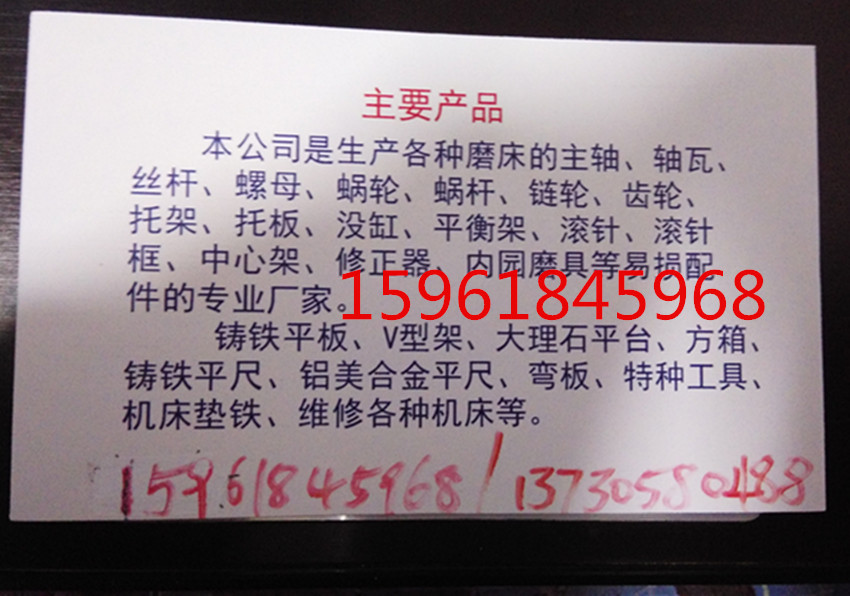 主要产品
本公司是生产各种磨床的主轴、轴瓦、
丝杆、螺母、蜗轮、蜗杆、链轮、齿轮、
托架、托板、没缸、平衡架、滚针、滚针
框、中心架、修正器、内园磨具等易损配
件的专业厂家。
15961845968
铸铁平板、V型架、大理石平台、方箱、
铸铁平尺、铝美合金平尺、弯板、特种工具、
机床垫铁、维修各种机床等。
15961845968/13730580488